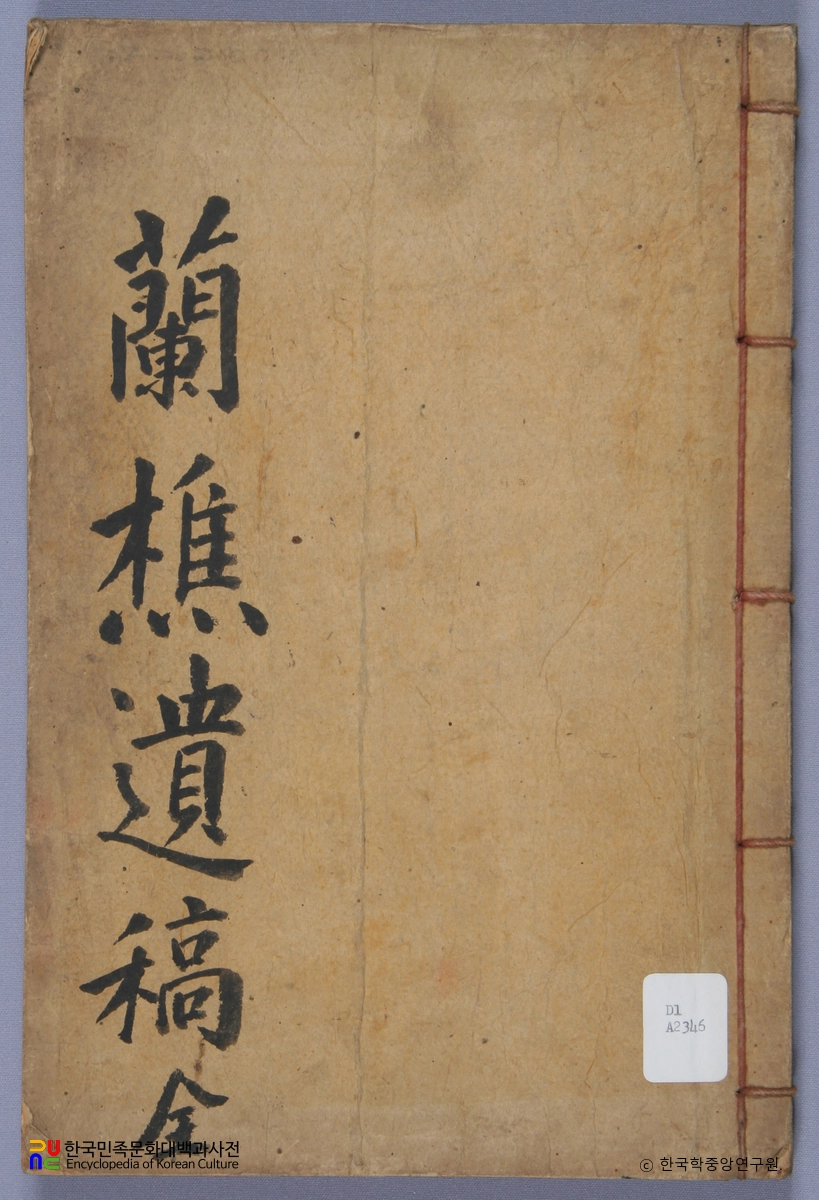 蘭樵遺稿 全
D1
A2346
한국민족문화대백과사전
Encyclopedia of Korean Culture
© 한국학중앙연구원